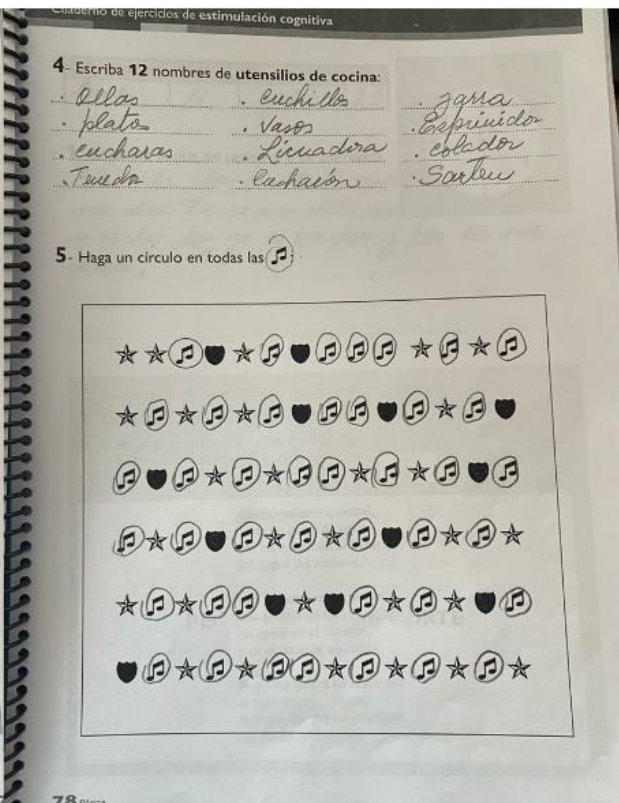 Cuaderno de ejercicios de estimulación cognitiva
4- Escriba 12 nombres de utensilios de cocina:
. Ollas
. platos
. cucharas
. Tenedor
. cuchillos
. vasos
. Licuadora
. Cacharón
. jarra
. Exprimidor
. colador
. Sarten
5- Haga un círculo en todas las
78 Página